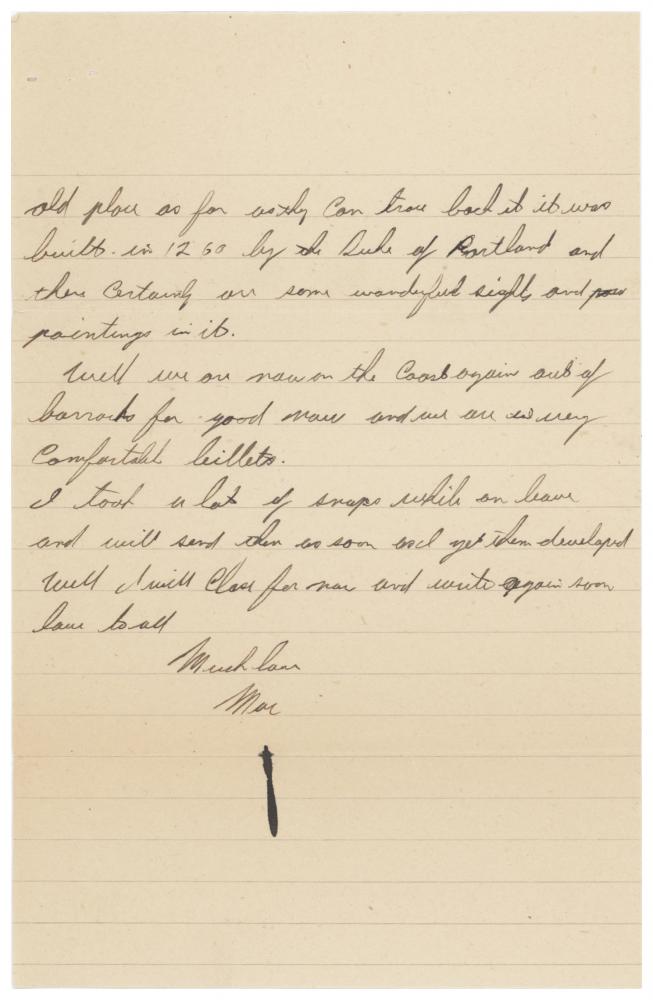 old place as far as thy can trace back it it was
built in 1260 by the Duke of Portland and
there certainly are some wanderful sights and
paintings in it.
Well we are now on the Coast again out of
barracks for good now and we are in very
Comfortabl billets.
I took a lot of snaps while on leave
and will send then as soon as I get them developed
Well I will Close for now and write again soon
love to all
Much love
Mac